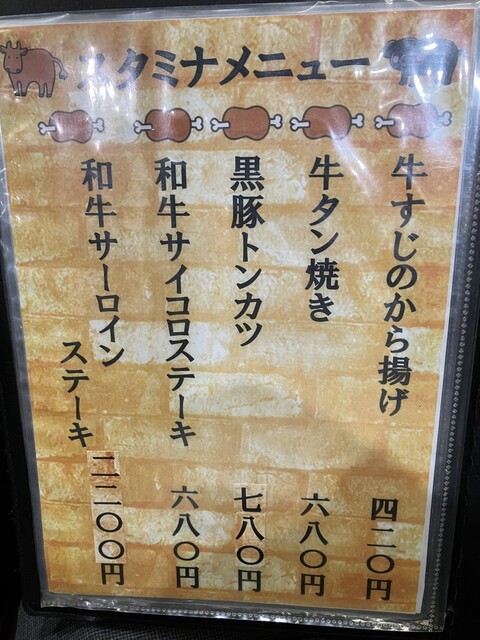 スタミナメニュー
牛すじのから揚げ 四二〇円
牛タン焼き 六八〇円
黒豚トンカツ 七八〇円
和牛サイコロステーキ 六八〇円
和牛サーロイン
ステーキ 二二〇〇円